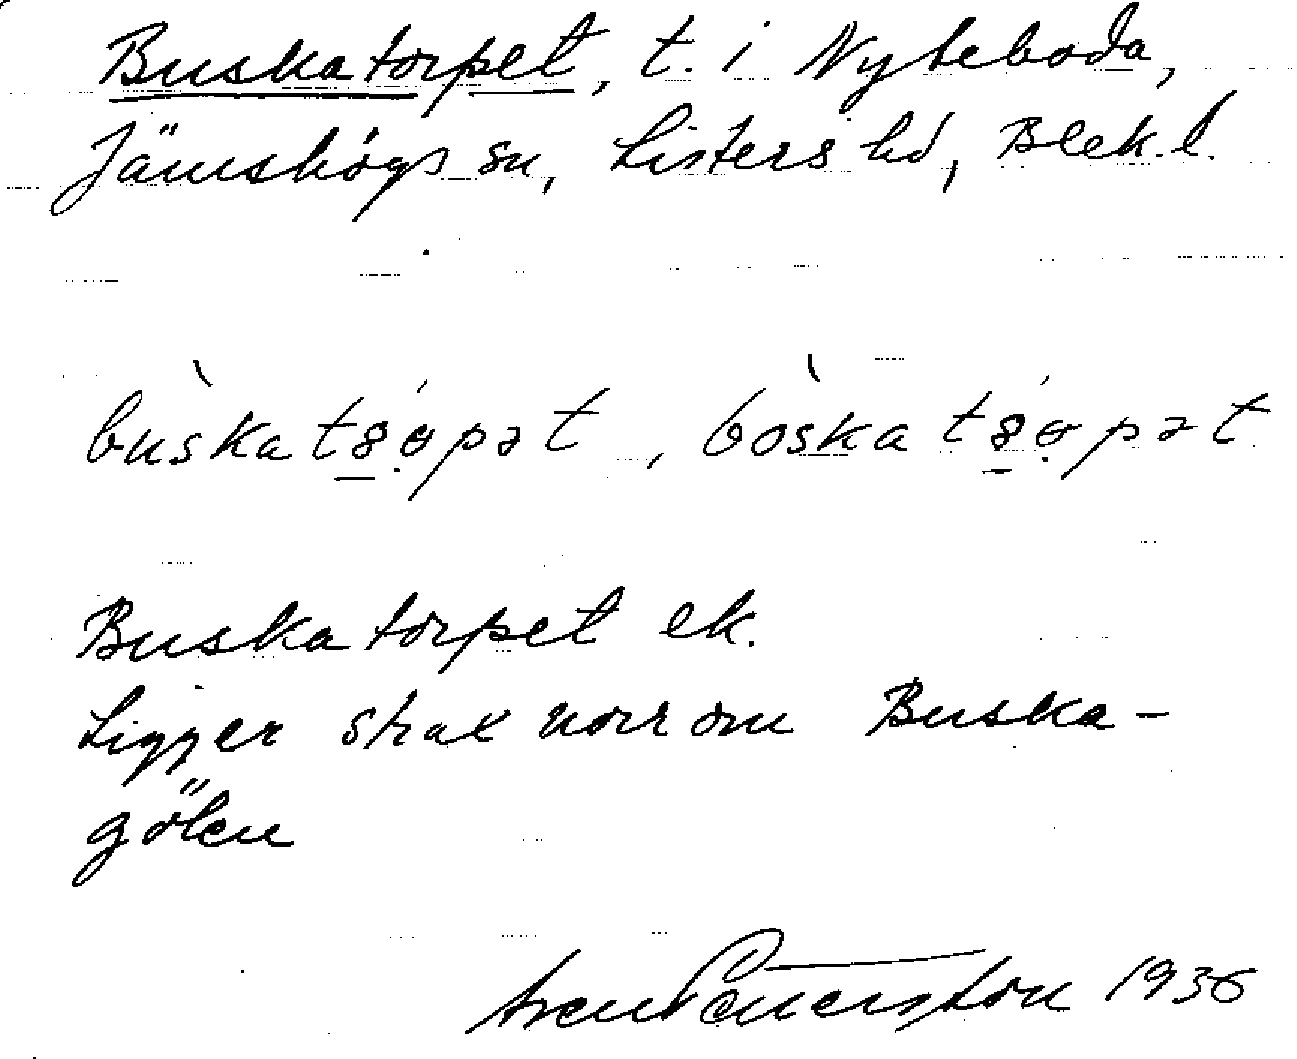 Buskatorpet, t. i Nyteboda,
Jämshögs sn, Listers hd, Blek. l.
bùskatạpət, bòskatạpət
Buskatorpet ek.
Ligger strax norr om Buska-
gölen
1936